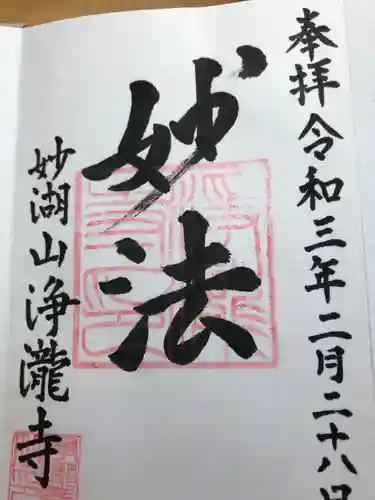 奉拝 令和三年二月二十八日
妙法
妙湖山 浄瀧寺